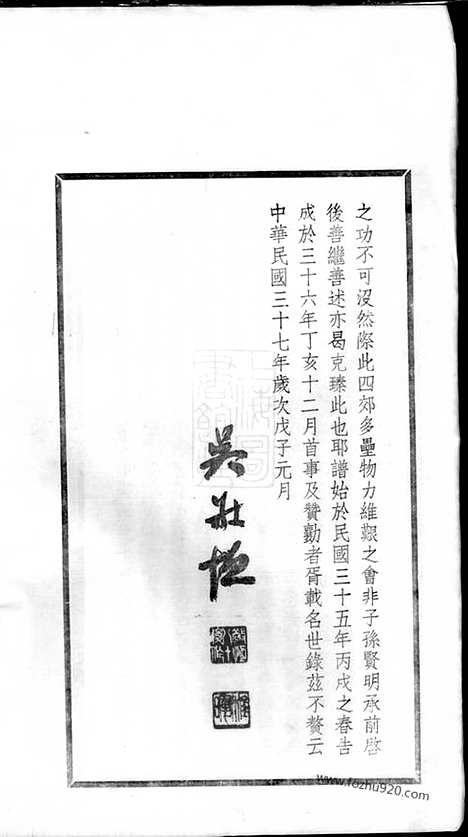 之功不可沒然際此四郊多壘物力維艱之會非子孫賢明承前啓
後善繼善述亦曷克臻此也耶譜始於民國三十五年丙戌之春告
成於三十六年丁亥十二月首事及贊勷者胥載名世錄茲不贅云
中華民國三十七年歲次戊子元月
吳
www.fozhu920.com